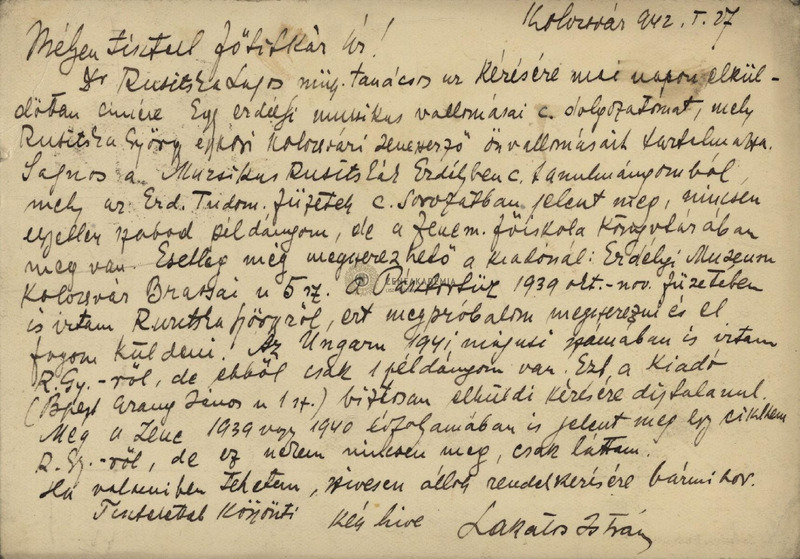 Kolozsvár 942. I. 27
Mélyen tisztelt főtitkár Úr!
Dr Rusitska Lajos műg. tanácsos ur kérésére mai napon elkül-
döttem címére Egy erdélyi muzsikus vallomásai c. dolgozatomat, mely
Rusitska György egykori kolozsvári zeneszerző önvallomásait tartalmazza.
Sajnos a Muzsikus Rusitskák Erdélyben c. tanulmányomból,
mely az Erd. Tudom. Füzetek c. sorozatban jelent meg, nincsen
egyetlen szabad példányom, de a Zenem. főiskola könyvtárában
meg van. Esetleg még megszerezhető a kiadónál: Erdélyi Muzeum
Kolozsvár Brassai u 5 sz. A Pásztortüz 1939 okt.-nov. füzetében
is irtam Ruzitska Györgyről, ezt megpróbálom megszerezni és el
fogom küldeni. Az Ungarn 1941 májusi számában is irtam
R. Gy.-ről, de ebből csak 1 példányom van. Ezt a Kiadó
(Bpest Arany János u 1 sz.) biztosan elküldi kérésére díjtalanul.
Még a Zene 1939 vagy 1940 évfolyamában is jelent meg egy cikkem
R. Gy.-ről, de ez nekem nincsen meg, csak láttam.
Ha valamiben tehetem, szivesen állok rendelkezésére bármikor.
Tisztelettel köszönti
kész hive
Lakatos István
ZENEAKADÉMIA